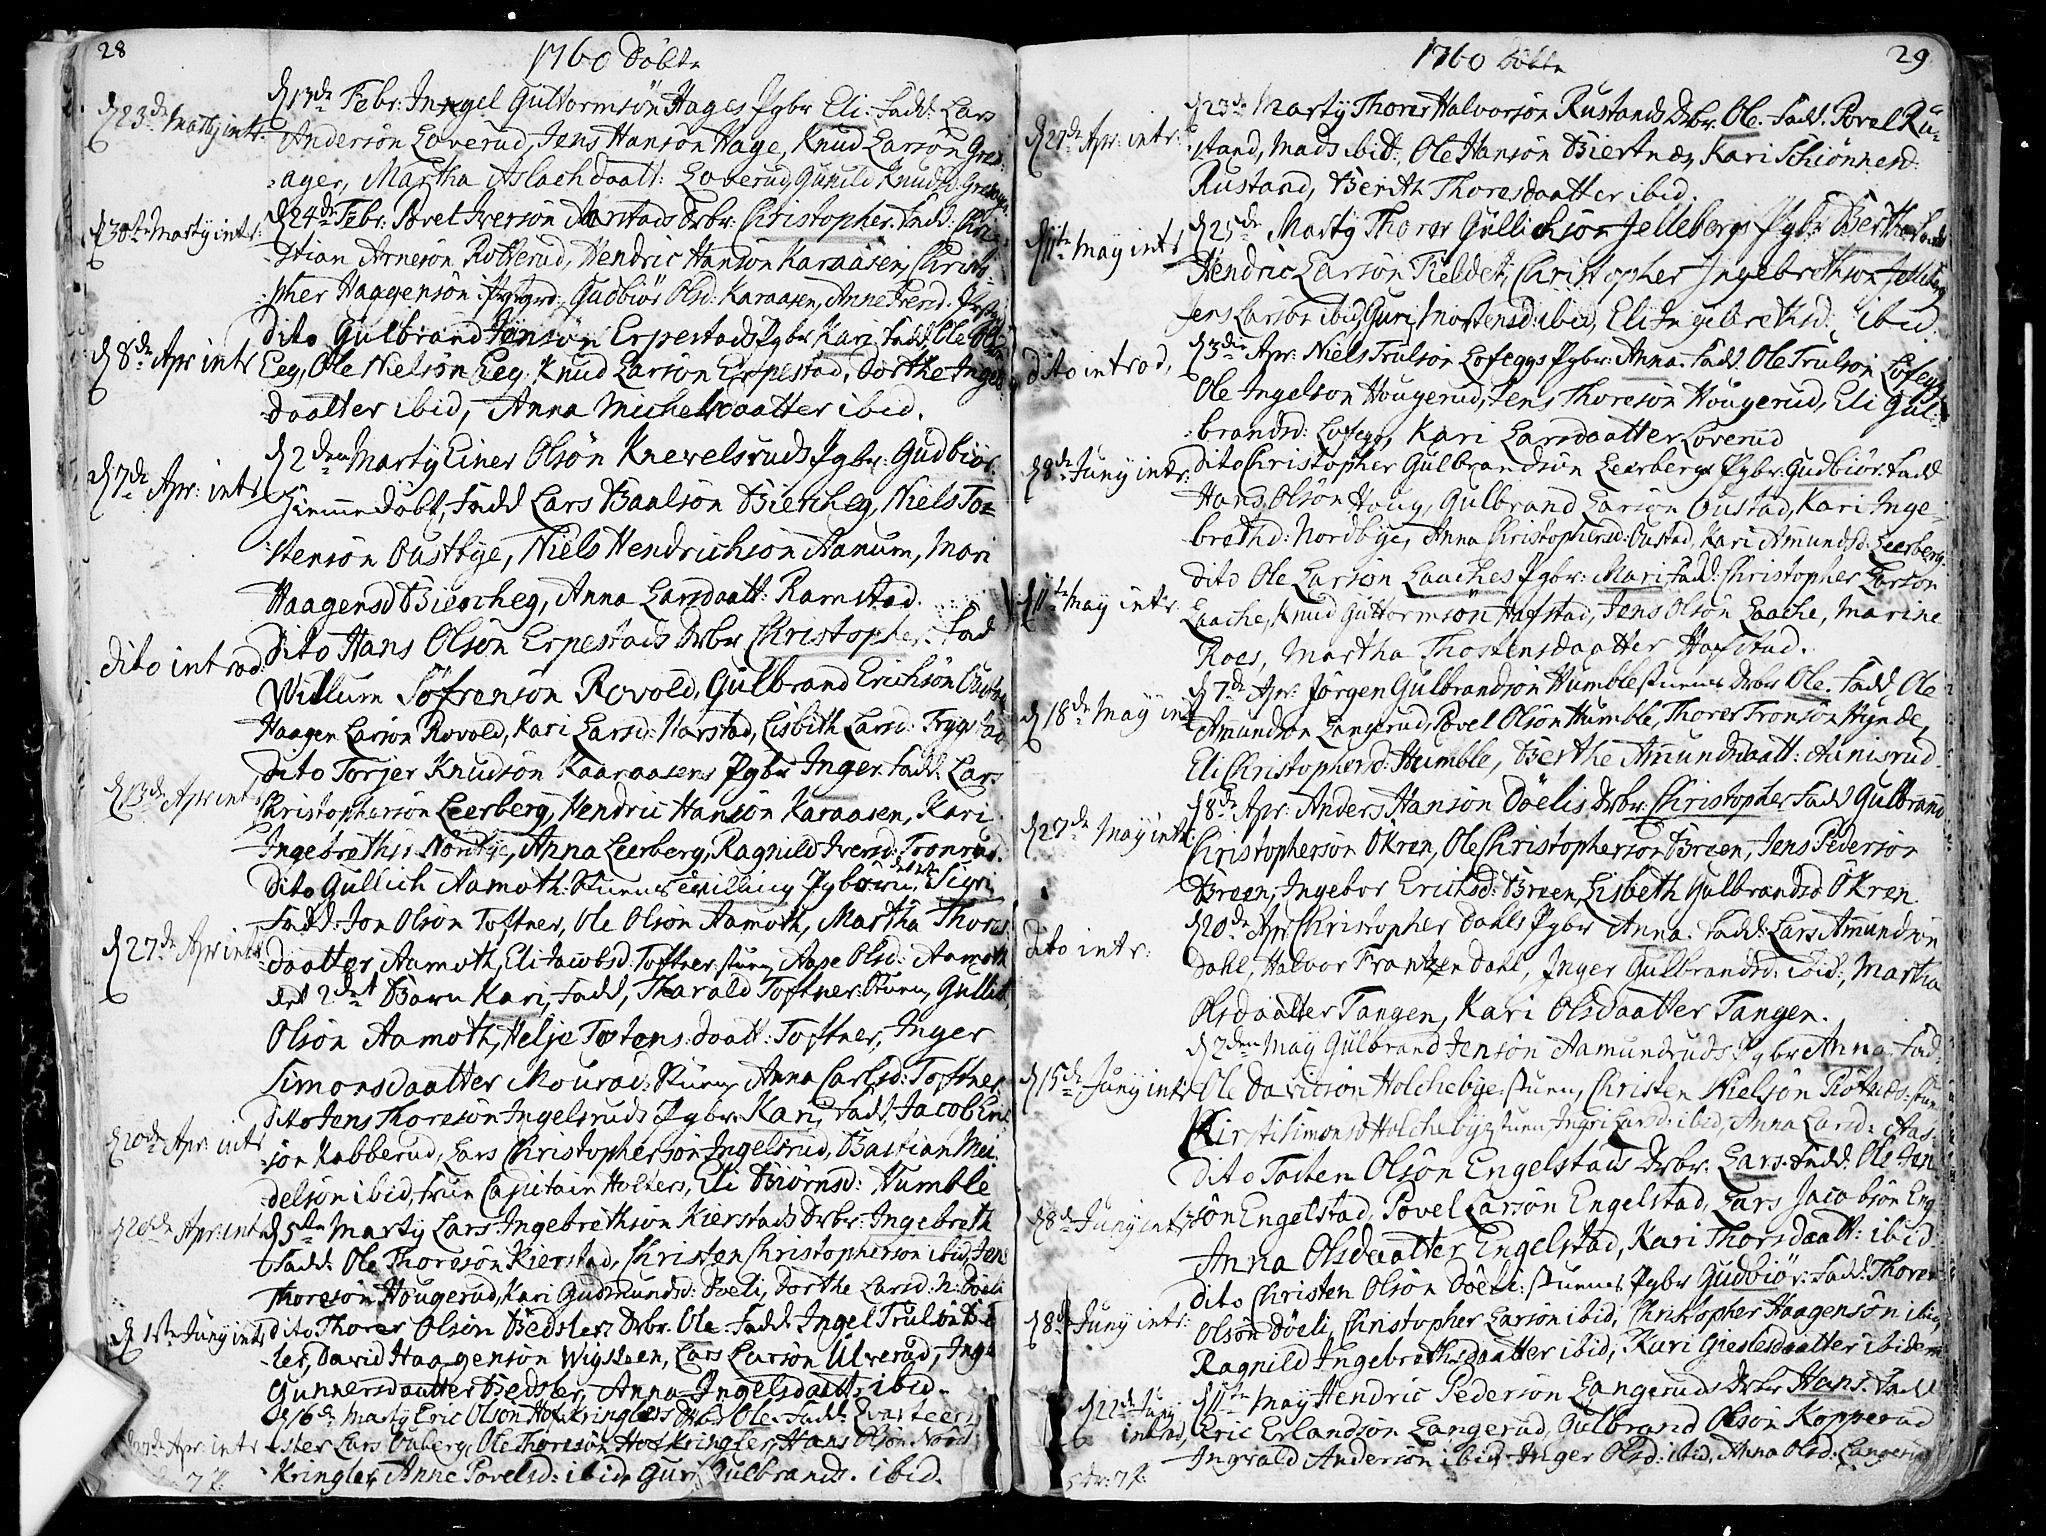 28
1760 Döbte
d 13de Febr: Ingel Guttormsön Hages Pgbr Eli. Fadd: Lars
d 23de Marty intr: Andersön Loverud, Jens Hansön Hage, Knud Larsön Gres-
ager, Martha Aslachdaatt: Loverud, Gunild Knudsd: Gresager
d 30te Marty intr: d 24de Febr: Povel Iversön Aarstads Drbr: Christopher. Fadd: Chri-
stian Arnesön Rotterud, Hendric Hansön Karaasen, Christo-
pher Haagensön, Gudbiör Olsd: Karaasen, Anne Iversd:
d 8de Apr intr Dito Gulbrand Hansön Erpestads Pgbr Kari. Fadd. Ole Ols
Eeg, Ole Nielsön Eeg, Knud Larsön Erpestad, Dorthe Ingels
daatter ibid, Anna Michelsdaatter ibid.
d 7de Apr: intr d 2den Marty Einer Olsön Knevelsruds Pgbr: Gudbiör.
Hiemmedöbt, Fadd Lars Baalsön Biercheg, Niels Tor-
stensön Oustbye, Niels Hendrichsön Aanum, Mari
Haagensd Biercheg, Anna Larsdaatt: Ramstad.
Dito introd: Dito Hans Olsön Erpestads Drbr Christopher. Fad
Willum Söfrensön Rovold, Gulbrand Erichsön Oustad
Haagen Larsön Rovold, Kari Larsd: Narstad, Lisbeth Larsd: Frygstad
d 13de Apr intr Dito Torjer Knudsön Kaaraasens Pgbr Inger. Fadd: Lars
Christophersön Leerberg, Hendric Hansön Karaasen, Kari
Ingebrethsd: Nordbye, Anna Leerberg, Ragnild Iversd: Tronrud.
Dito Gullich Aamoth: Stuens tvilling Pgbörn, det 1ste Sigri
Fadd: Jon Olsön Toftner, Ole Olsön Aamoth, Martha Thores
d 27de Apr intr daatter Aamoth, Eli Jacobsd: Toftner: stuen, Aase Olsd: Aamoth
det 2det Barn Kari, Fadd, Tharald Toftner: Stuen, Gullich
Olsön Aamoth, Helje Tostensdaatt: Toftner, Inger
Simonsdaatter Mourad: Stuen, Anna Carlsd: Toftner
d 20de Apr: intr Dito Jens Thoresön Ingelsruds Pgbr: Kari, Fadd, Jacob
sön Kabberud, Lars Christophersön Ingelsrud, Bastian Mei-
delsön ibid, Frue Capitain Holters, Eli Biörnsd: Humble
d 20de Apr: intr d 5te Marty Lars Ingebrethsön Kierstads Drbr: Ingebreth
Fadd: Ole Thoresön Kierstad, Christen Christophersön ibid, Jens
Thoresön Hougerud, Kari Gudmundsd: Dveli, Dorthe Larsd: N: Dveli
d 1ste Juny intr Dito Thorer Olsön Bedsler Drbr. Ole. Fadd Ingel Trulsön Bed
ler, David Haagensön Wigsteen, Lars Larsön Ulverud, Inge
Gunnersdaatter Bedsler, Anna Ingelsdaatt: ibid.
d 16de Marty Eric Olsön Hofskringlers Drbr Ole. Fadd: Qvarteerm
d 27de Apr: intr ster Lars Ouberg, Ole Thoresön Hofskringler, Hans Olsön Nord
7 f: Kringler, Anne Povelsd: ibid, Guri Gulbrands. ibid.
29
1760 Döbte
d 23de Marty Thorer Halvorsön Rustands Drbr. Ole. Fadd. Povel Ru-
d 27de Apr: intr: stand, Mads ibid, Ole Hansön Biertnæs, Kari Schiönnerd.
Rustand, Berith Thoresdaatter ibid.
d 11te May intr d 25de Marty Thorer Gullichsön Jellebergs Pgbr Berthe Fadd
Hendric Larsön Fieldet, Christopher Ingebrethsön Jelleberg
Jens Larsön ibid, Guri Mortensd: ibid, Eli Ingebrethsd: ibid.
Dito introd, d 3die Apr: Niels Trulsön Lofeggs Pgbr: Anna. Fadd. Ole Trulsön Lofegg
Ole Ingelsön Hougerud, Jens Thoresön Hougerud, Eli Gul-
brandsd: Lofegg, Kari Larsdaatter Loverud
d 8de Juny intr: Dito Christopher Gulbrandsön Leerbergs Pgbr: Gudbiör. Fadd
Hans Olsön Houg, Gulbrand Larsön Oustad, Kari Inge-
brethsd: Nordbye, Anna Christophersd: Oustad, Kari Amundsd: Leerberg.
d 11te May intr: Dito Ole Larsön Laaches Pgbr: Mari Fadd: Christopher Larsön
Laache, Knud Guttormsön Hafstad, Jens Olsön Laache, Marine
Roes, Martha Thostensdaatter Hafstad.
d 18de May intr d 7de Apr: Jörgen Gulbrandsön Humblestuens Drbr Ole. Fadd Ole
Amundsön Langerud, Povel Olsön Humble, Thorer Tronsön Hynde,
Eli Christophersd: Humble, Berthe Amundsdaatt: Aunisrud.
d 8de Apr: Anders Hansön Döelis Drbr. Christopher Fadd Gulbrand
d 27de May intr Christophersön Ökren, Ole Christophersön Breen, Jens Pedersön
Breen, Ingebor Erichsd: Breen, Lisbeth Gulbrandsd Ökren
d 20de Apr Christopher Dahls Pgbr Anna. Fadd: Lars Amundsön
Dito intr: Dahl, Halvor Frantzen Dahl, Inger Gulbrandsd: ibid, Martha
Olsdaatter Tangen, Kari Olsdaatter Tangen.
d 2den May Gulbrand Jensön Aamundruds Pgbr Anna Fad:
d 15de Juny intr Ole Davidsön Holchebye: stuen, Christen Nielsön Piötnæs: stue
Kirsti Simonsd Holchebye: stuen, Ingri Larsd: ibid, Anna Larsd: Aas-
Dito Tosten Olsön Engelstads Drbr: Lars. Fadd. Ole Jen-
d 8de Juny intr: sön Engelstad, Povel Larsön Engelstad, Lars Jacobsön Eng
Anna Olsdaatter Engelstad, Kari Thorsdaatt: ibid.
Dito Christen Olsön Döeli: stuens Pgbr Gudbiör: Fadd: Thorer
d 8de Juny intr: Olsön Döeli, Christopher Larsön ibid, Christopher Haagensön ibid,
Ragnild Ingebrethsdaatter ibid, Kari Gieslesdaatter ibidem
d 11te May Hendric Pedersön Langeruds Drbr Hans. Fadd
d 22de Juny introd, Eric Erlandsön Langerud, Gulbrand Olsön Kopperud
Ingvald Andersön ibid, Inger Olsd: ibid, Anna Olsd: Langerud
5 Dr: 7 P: